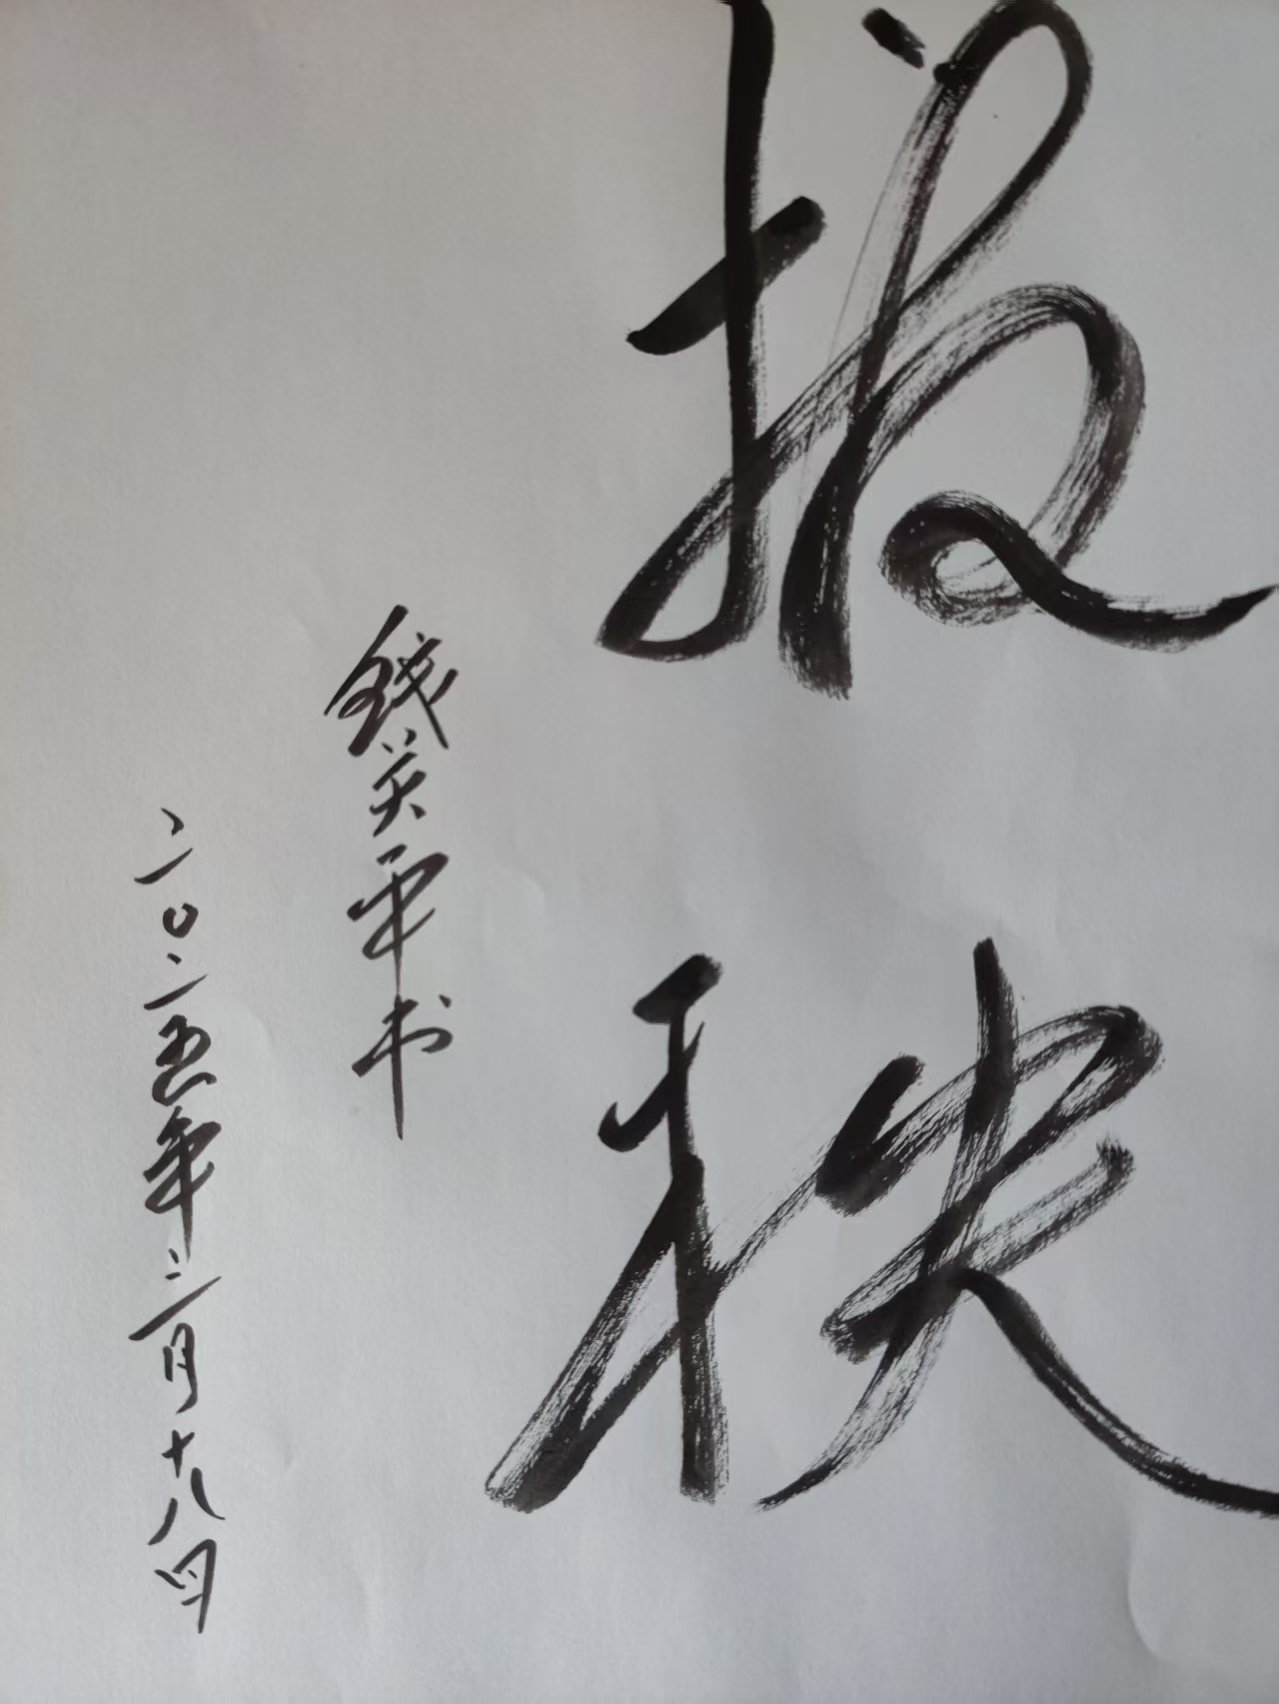 拔秧
钱关平书
二〇二五年三月十八日